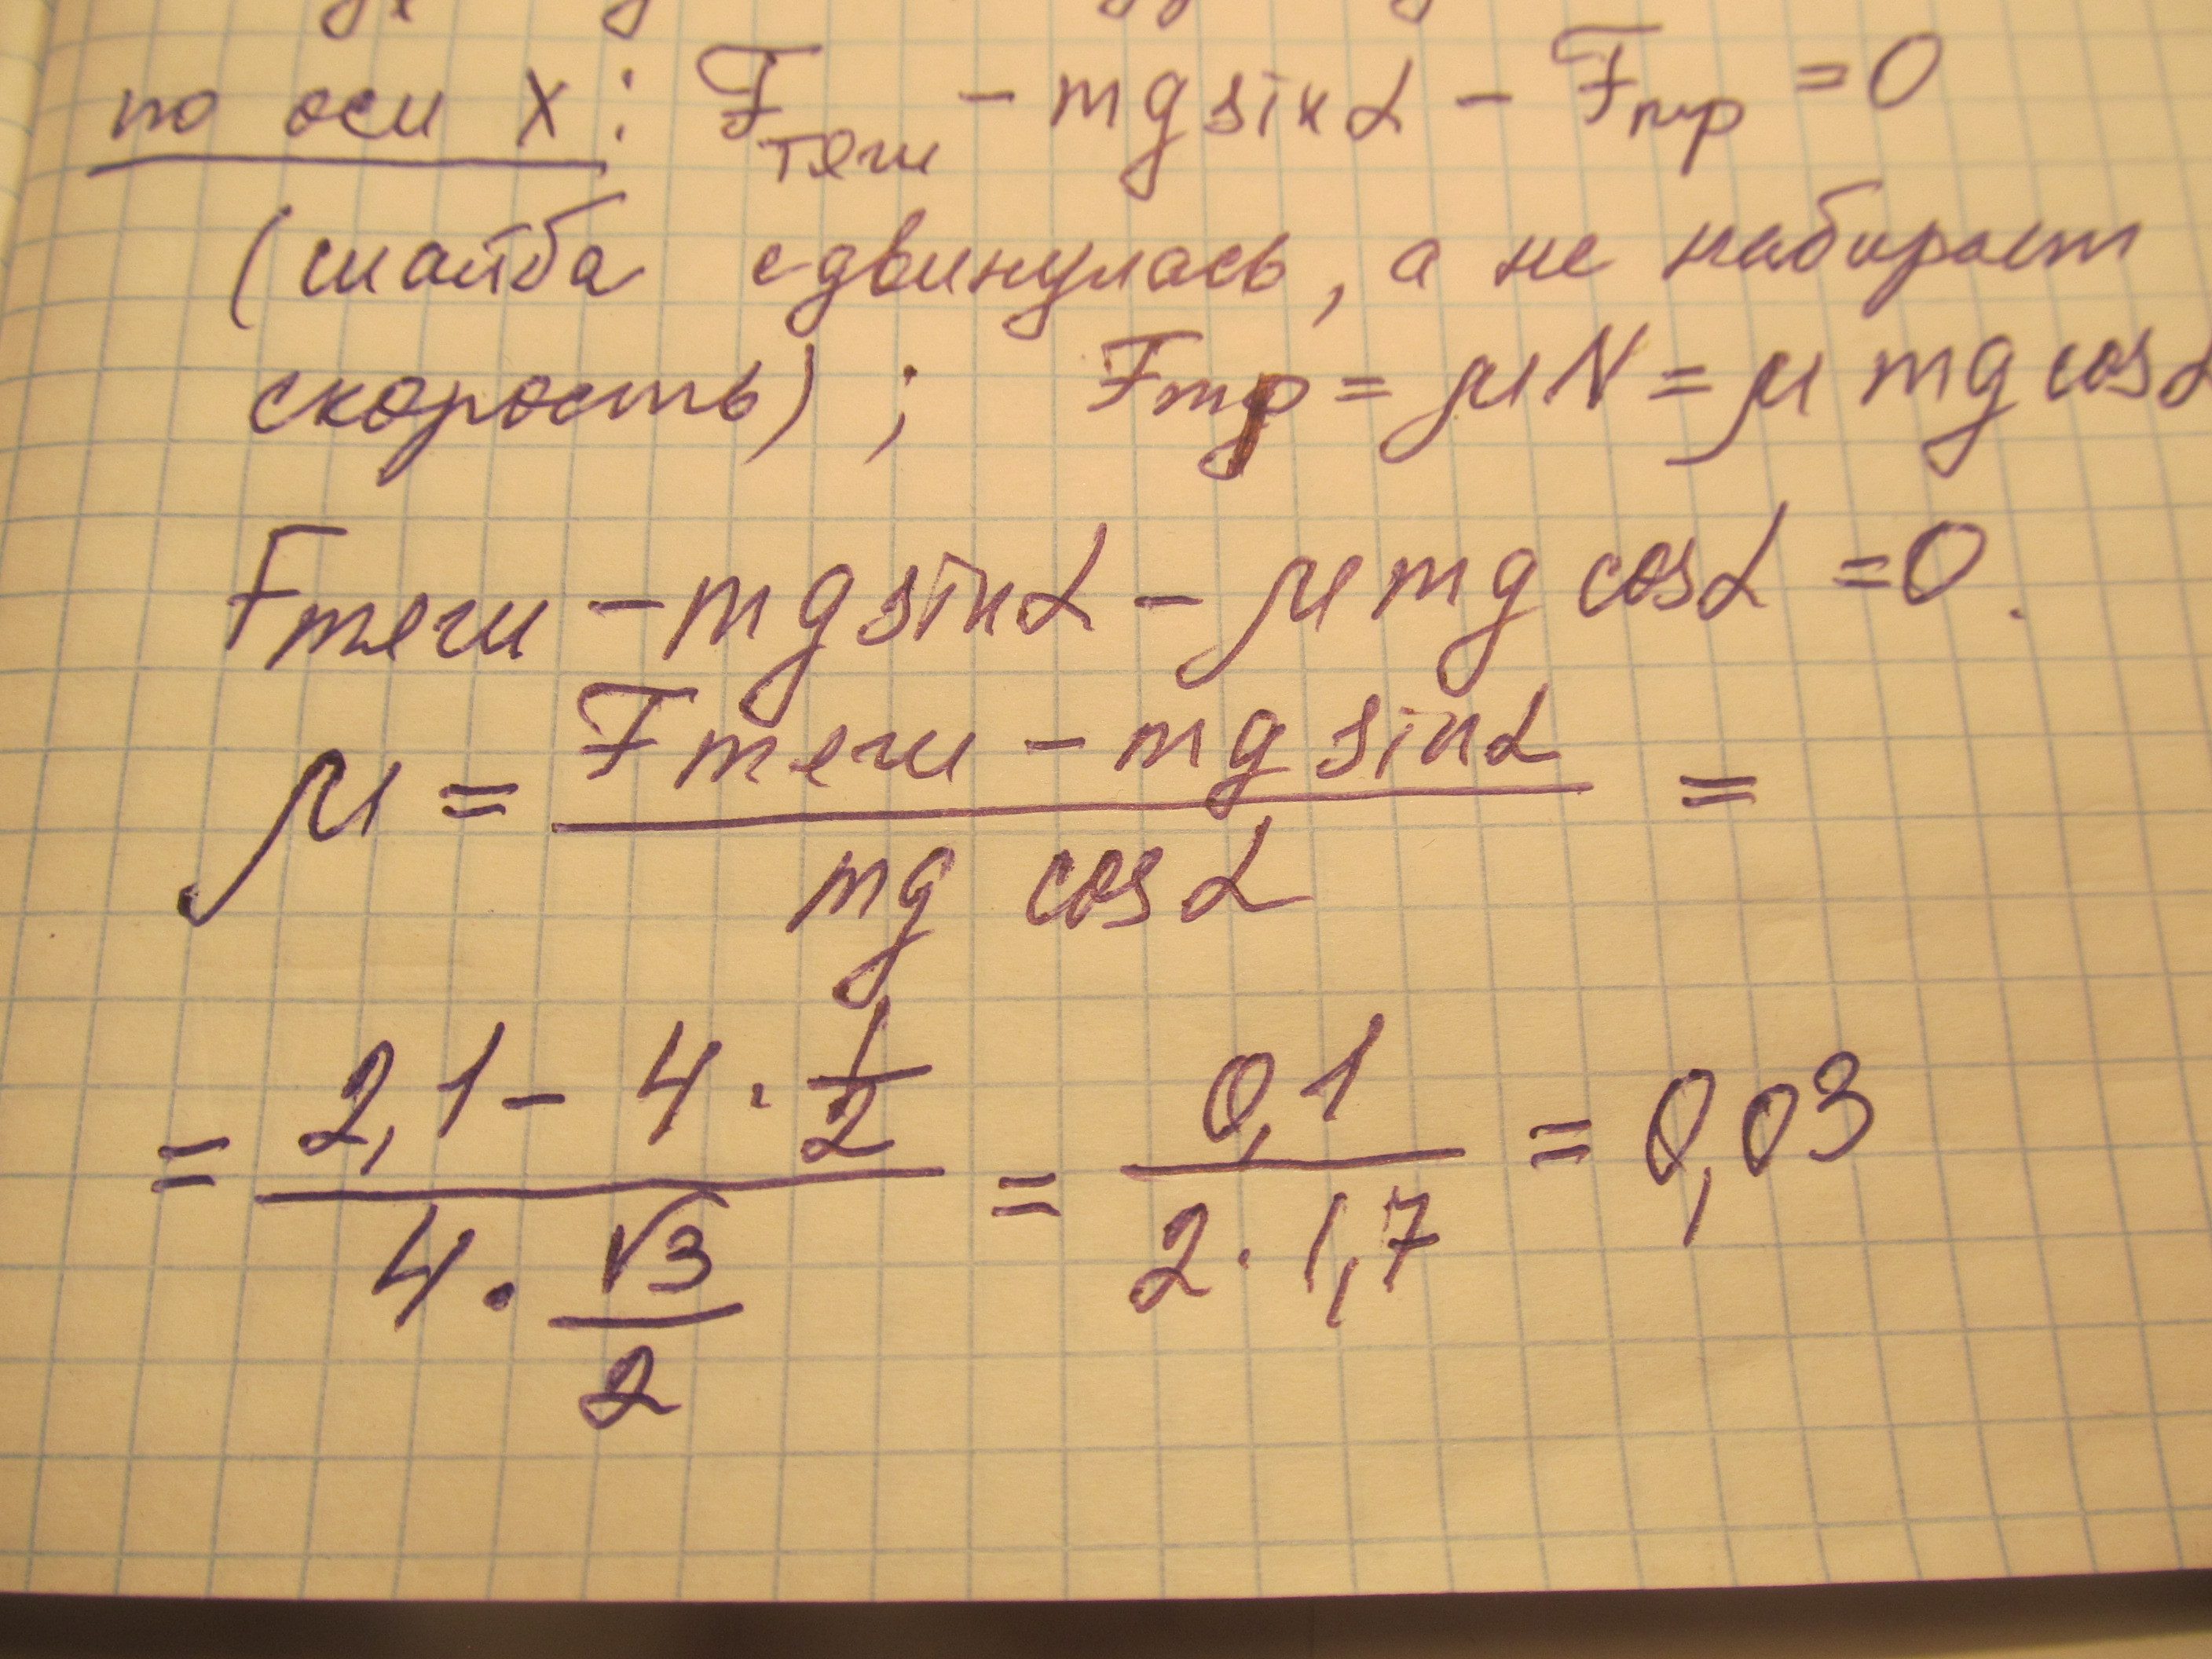 по оси x: Fтяги - mg sin α - Fтр = 0
(шайба сдвинулась, а не набирает
скорость); Fтр = μN = μ mg cos α
Fтяги - mg sin α - μ mg cos α = 0.
μ = (Fтяги - mg sin α) / (mg cos α) =
= (2,1 - 4 · 1/2) / (4 · √3/2) = 0,1 / (2 · 1,7) = 0,03